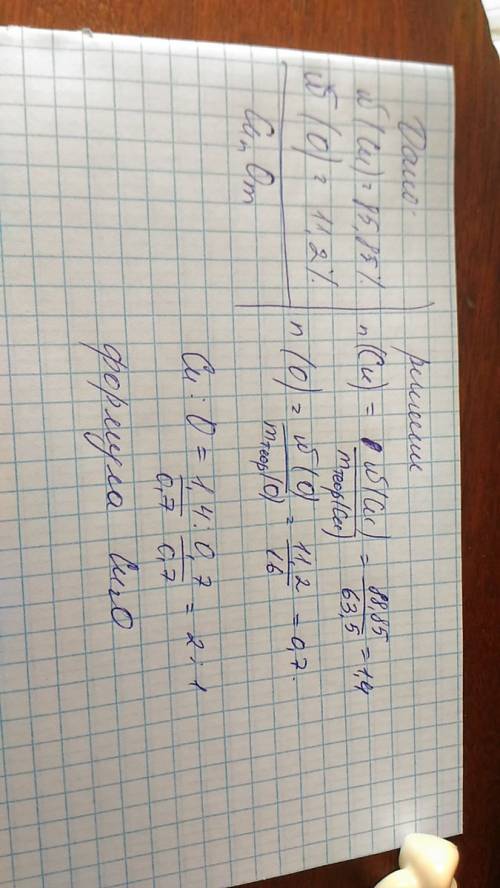 Дано:
ω (Cu) = 85,85%
ω (O) = 11,2%
CunOm
решение
n (Cu) = ω (Cu) / mтеор(Cu) = 88,85 / 63,5 = 1,4
n (O) = ω (O) / mтеор(O) = 11,2 / 16 = 0,7.
Cu : O = 1,4 / 0,7 : 0,7 / 0,7 = 2 : 1
формула Cu2O